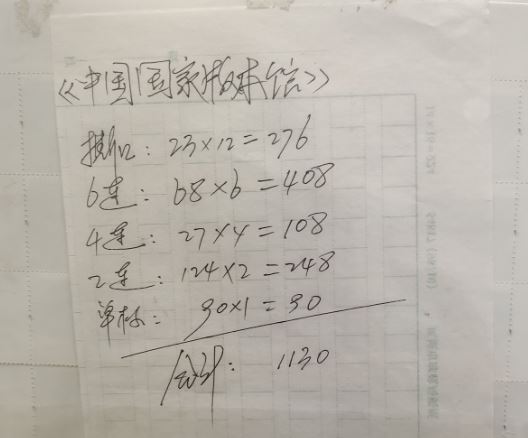 《中国国家版本馆》
: 23×12=276
6连: 68×6=408
4连: 27×4=108
2连: 124×2=248
单枚: 90×1=90
合计: 1130